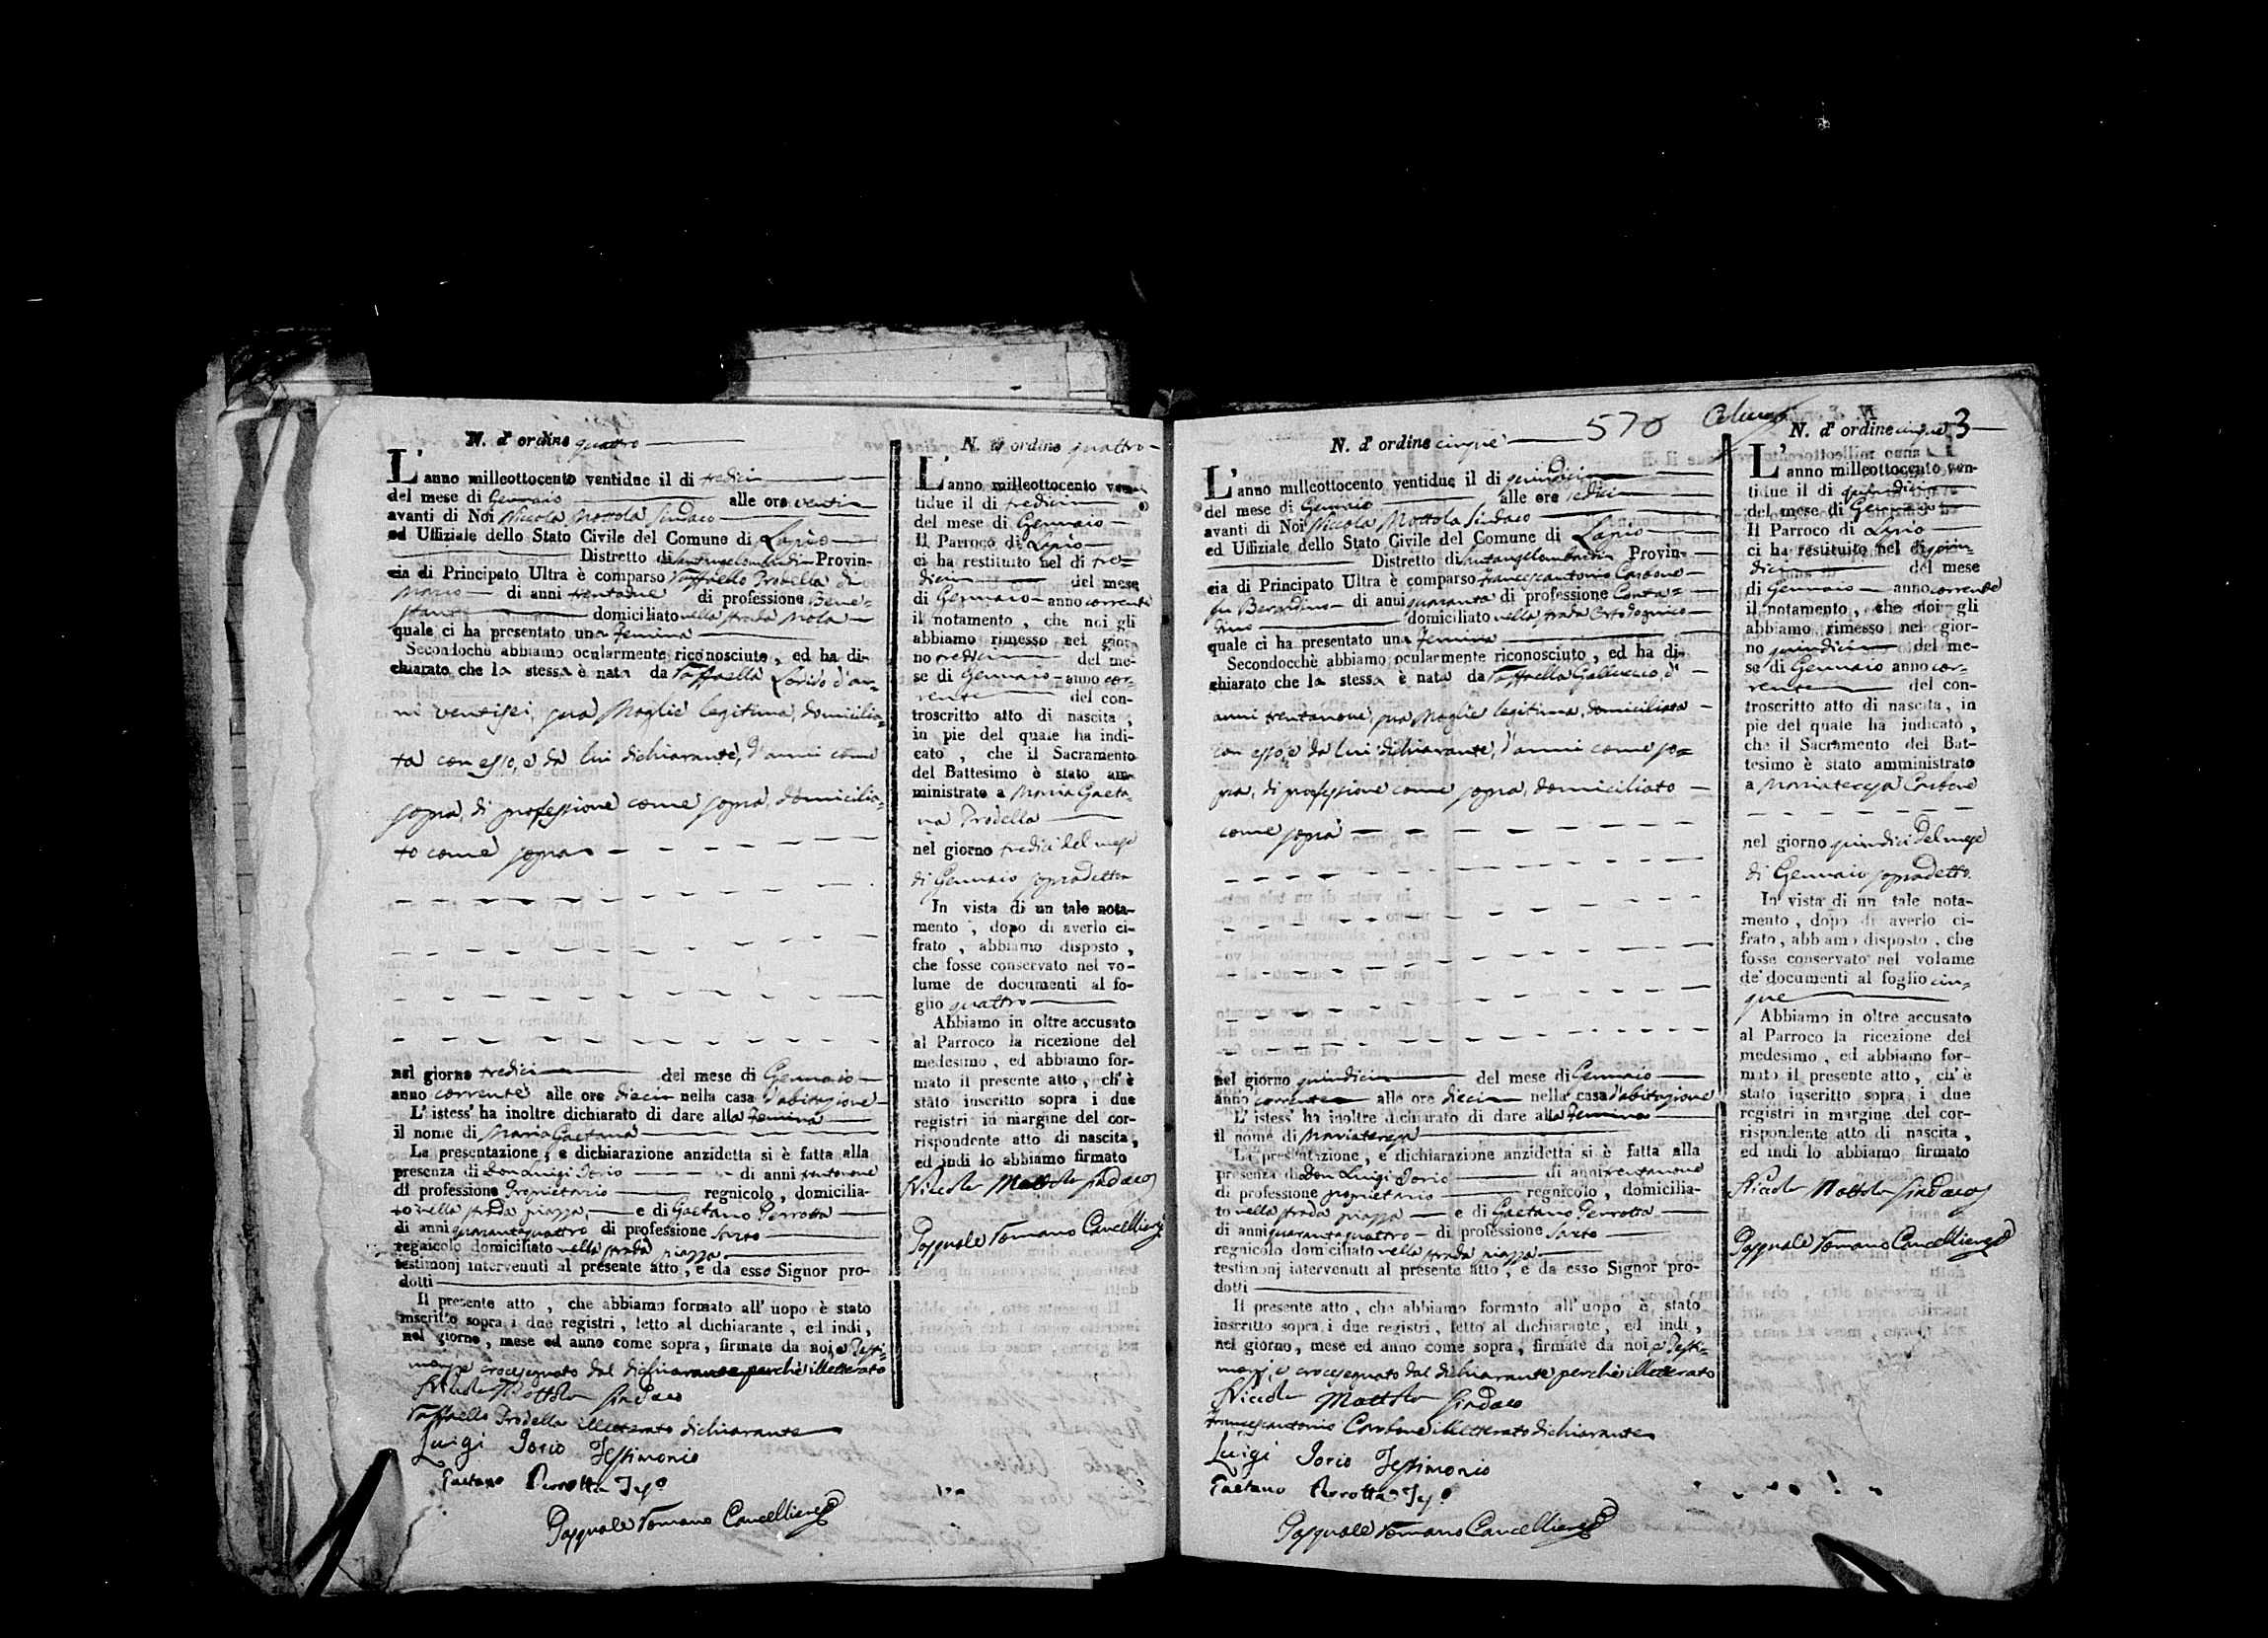 N. d' ordine quattro
L' anno milleottocento ventidue il di tredici
del mese di Gennaio alle ore venti
avanti di Noi Niccola Mottola Sindaco
ed Uffiziale dello Stato Civile del Comune di Lapio
Distretto di Santangelombardi Provin-
cia di Principato Ultra è comparso Raffaello Trodella di
Mario di anni trentadue di professione Bene=
stante domiciliato nella strada Mola
quale ci ha presentato una Femina
Secondochè abbiamo ocularmente riconosciuto, ed ha di-
chiarato che la stessa è nata da Raffaella d'an=
ni ventisei, sua Moglie legitima, domicilia=
ta con esso, e da lui dichiarante, d'anni come
sopra, di professione come sopra, domicilia=
to come sopra
nel giorno tredici del mese di Gennaio
anno corrente alle ore dieci nella casa d'abitazione
L' istess' ha inoltre dichiarato di dare alla Femina
il nome di Maria Gaetana
La presentazione, e dichiarazione anzidetta si è fatta alla
presenza di Don Luigi Iorio di anni trentanove
di professione Proprietario regnicolo, domicilia-
to nella strada piazza, e di Gaetano Perrotta
di anni quarantaquattro di professione Sarto
regnicolo domiciliato nella strada piazza
testimonj intervenuti al presente atto, e da esso Signor pro-
dotti
Il presente atto, che abbiamo formato all' uopo è stato
inscritto sopra i due registri, letto al dichiarante, ed indi,
nel giorno, mese ed anno come sopra, firmate da noi, e Testi=
monj, e crocesegnato dal dichiarante perchè illetterato
Niccola Mottola Sindaco
Raffaello Trodella illetterato dichiarante
Luigi Iorio Testimonio
Gaetano Perrotta Tes.º
Pasquale Romano Cancelliere
N. d' ordine quattro
L' anno milleottocento ven-
tidue il di tredici
del mese di Gennaio
Il Parroco di Lapio
ci ha restituito nel di tre=
dici del mese
di Gennaio anno corrente
il notamento, che noi gli
abbiamo rimesso nel gior-
no tredici del me-
se di Gennaio anno cor=
rente del con-
troscritto atto di nascita,
in pie del quale ha indi-
cato, che il Sacramento
del Battesimo è stato am-
ministrato a Maria Gaeta=
na Trodella
nel giorno tredici del mese
di Gennaio sopradetto
In vista di un tale nota-
mento, dopo di averlo ci-
frato, abbiamo disposto,
che fosse conservato nel vo-
lume de documenti al fo-
glio quattro
Abbiamo in oltre accusato
al Parroco la ricezione del
medesimo, ed abbiamo for-
mato il presente atto, ch' è
stato inscritto sopra i due
registri in margine del cor-
rispondente atto di nascita,
ed indi lo abbiamo firmato
Niccola Mottola Sindaco
Pasquale Romano Cancelliere
570
3
N. d' ordine cinque
L' anno milleottocento ventidue il di quindici
del mese di Gennaio alle ore sedici
avanti di Noi Niccola Mottola Sindaco
ed Uffiziale dello Stato Civile del Comune di Lapio
Distretto di Santangelombardi Provin-
cia di Principato Ultra è comparso Francescantonio Carbone
fu Berardino di anni quaranta di professione Conta=
dino domiciliato nella strada
quale ci ha presentato una Femina
Secondocchè abbiamo ocularmente riconosciuto, ed ha di-
chiarato che la stessa è nata da Raffaella Galluccio, d'
anni trentanove, sua Moglie legitima, domiciliata
con esso, e da lui dichiarante, d'anni come so=
pra, di professione come sopra, domiciliato
come sopra
nel giorno quindici del mese di Gennaio
anno corrente alle ore dieci nella casa d'abitazione
L' istess' ha inoltre dichiarato di dare alla Femina
il nome di Mariateresa
La presentazione, e dichiarazione anzidetta si è fatta alla
presenza di Don Luigi Iorio di anni trentanove
di professione proprietario regnicolo, domicilia-
to nella strada piazza e di Gaetano Perrotta
di anni quarantaquattro di professione Sarto
regnicolo domiciliato nella strada piazza
testimonj intervenuti al presente atto, e da esso Signor pro-
dotti
Il presente atto, che abbiamo formato all' uopo è stato
inscritto sopra i due registri, letto al dichiarante, ed indi,
nel giorno, mese ed anno come sopra, firmate da noi e Testi=
monj, e crocesegnato dal dichiarante perchè illetterato
Niccola Mottola Sindaco
Francescantonio Carbone illetterato dichiarante
Luigi Iorio Testimonio
Gaetano Perrotta Tes.º
Pasquale Romano Cancelliere
N. d' ordine cinque
L' anno milleottocento ven-
tidue il di quindici
del mese di Gennaio
Il Parroco di Lapio
ci ha restituito nel di quin=
dici del mese
di Gennaio anno corrente
il notamento, che noi gli
abbiamo rimesso nel gior-
no quindici del me-
se di Gennaio anno cor=
rente del con-
troscritto atto di nascita, in
pie del quale ha indicato,
che il Sacramento del Bat-
tesimo è stato amministrato
a Mariateresa Carbone
nel giorno quindici del mese
di Gennaio sopradetto
In vista di un tale nota-
mento, dopo di averlo ci-
frato, abbiamo disposto, che
fosse conservato nel volume
de' documenti al foglio cin=
que
Abbiamo in oltre accusato
al Parroco la ricezione del
medesimo, ed abbiamo for-
mato il presente atto, ch' è
stato inscritto sopra i due
registri in margine del cor-
rispondente atto di nascita,
ed indi lo abbiamo firmato
Niccola Mottola Sindaco
Pasquale Romano Cancelliere